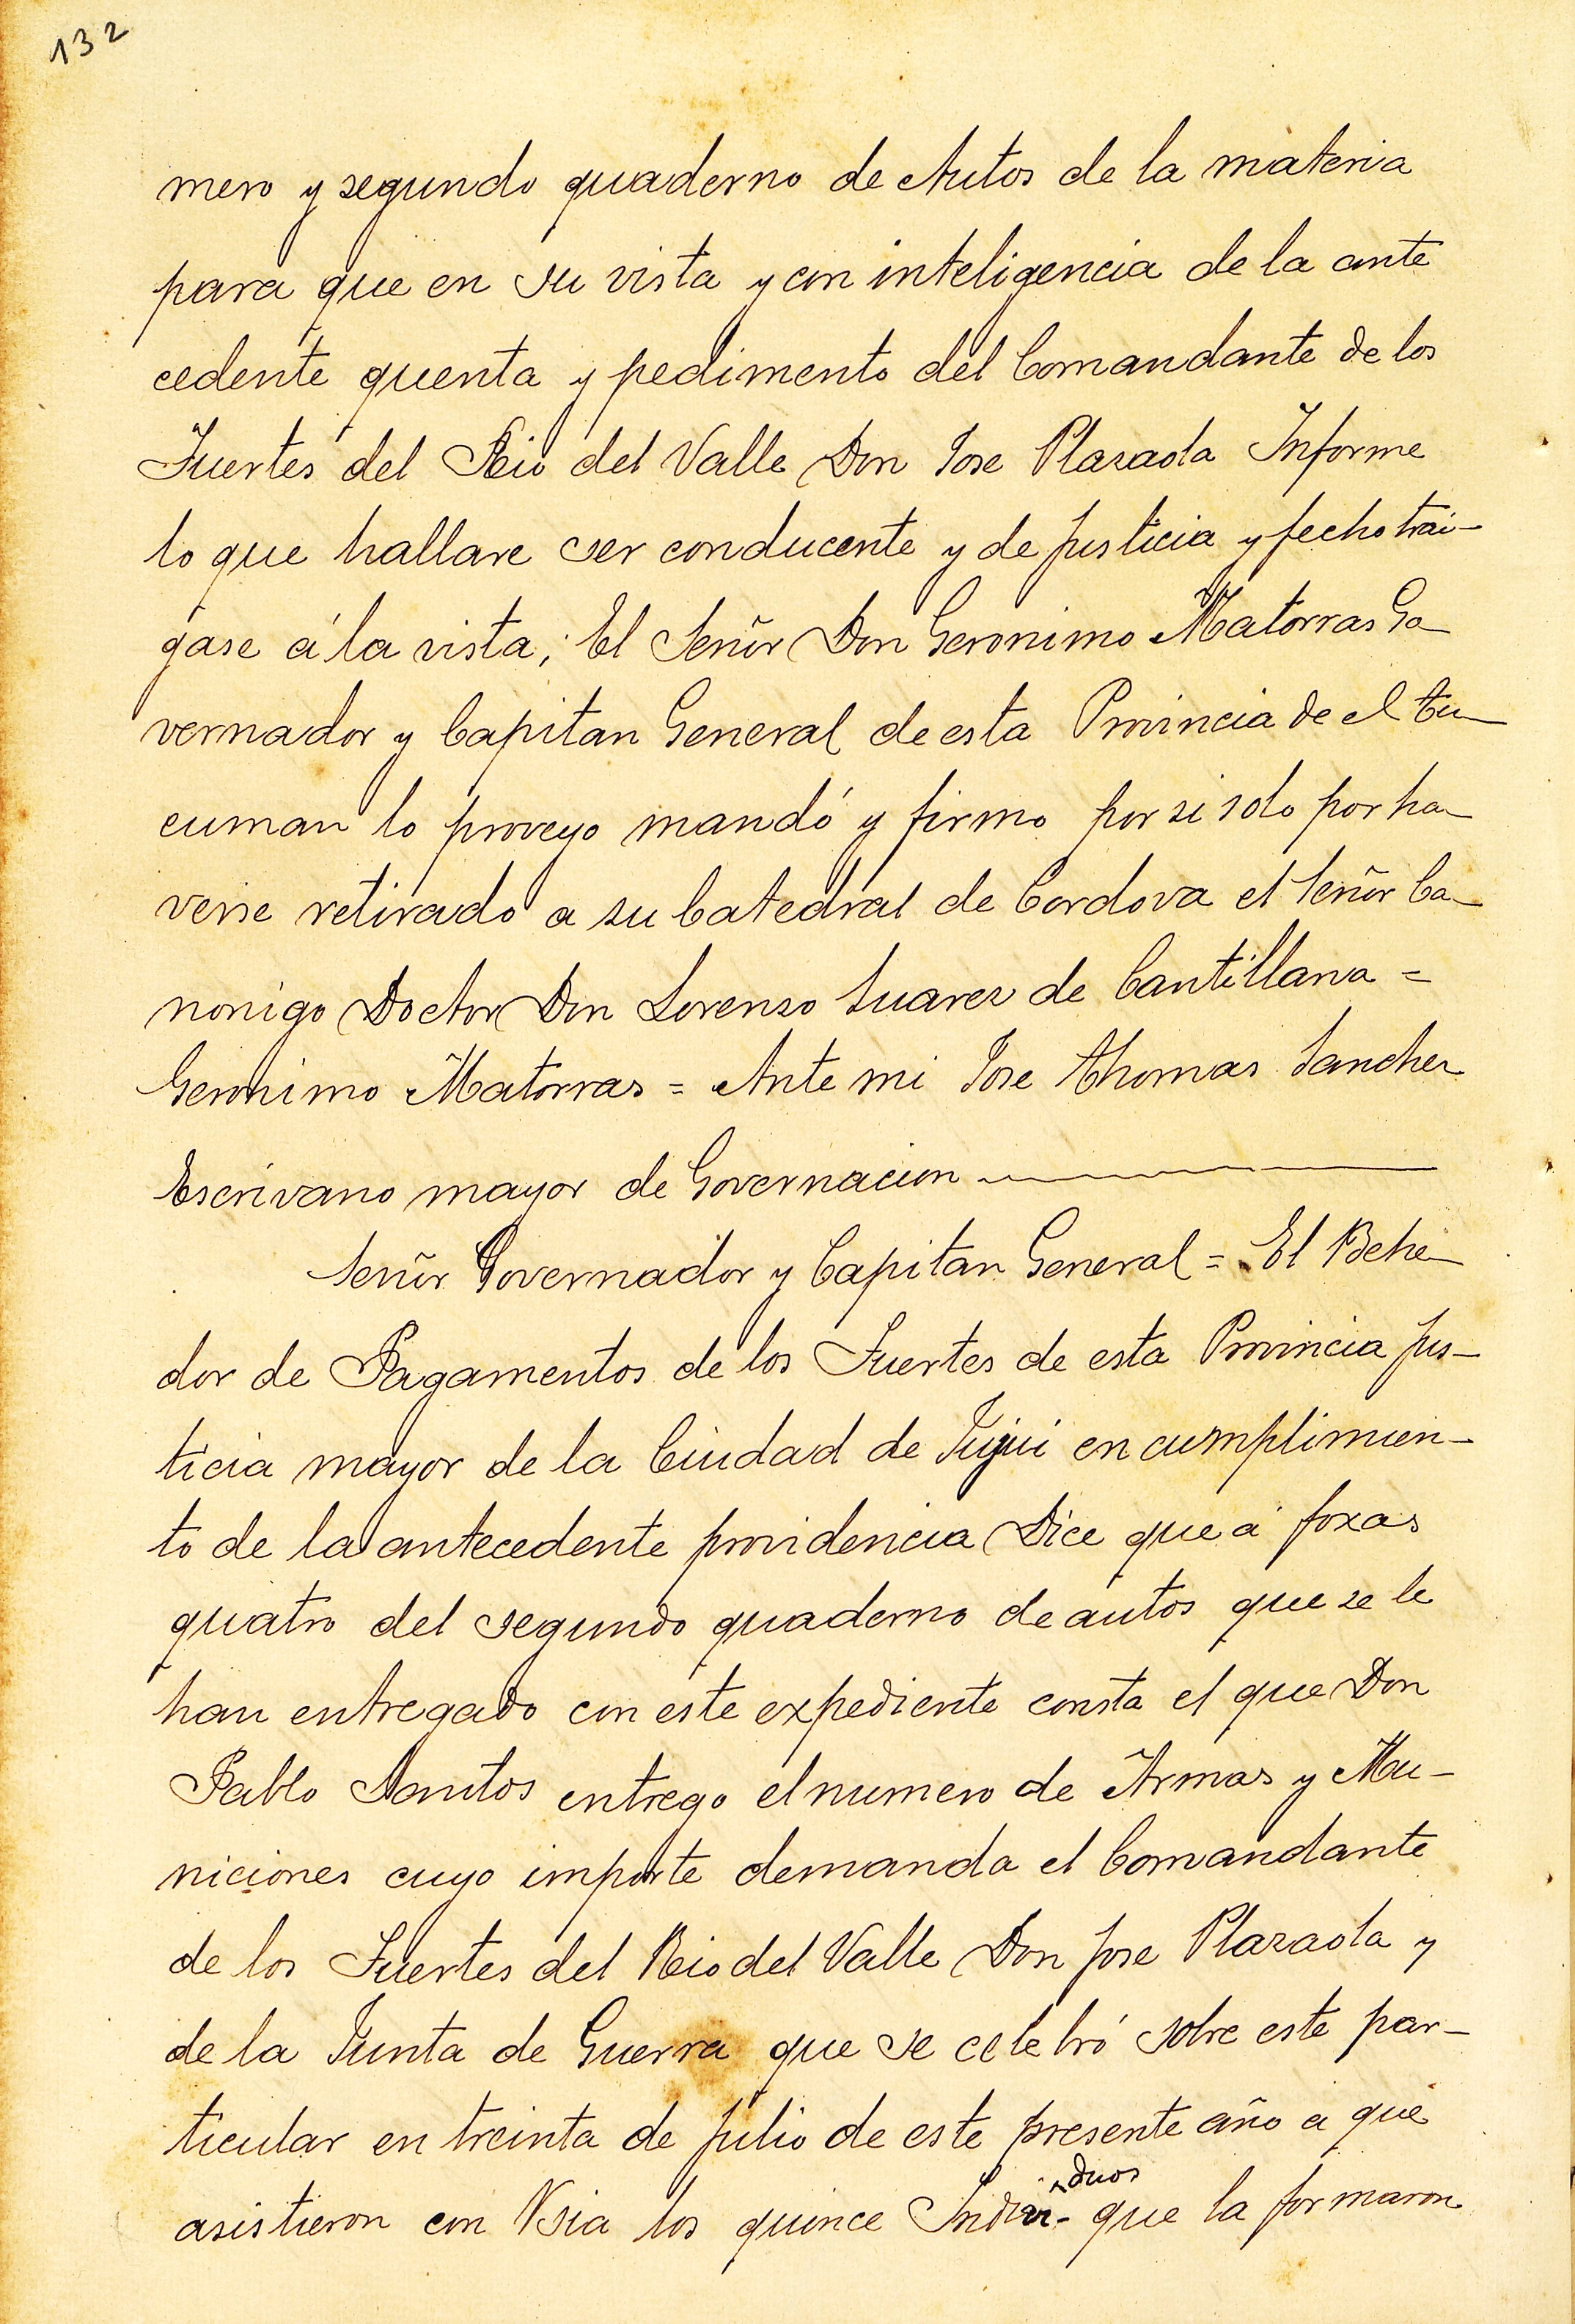 132
mero y segundo quaderno de Autos de la materia
para que en su vista y con inteligencia de la ante
cedente quenta y pedimento del Comandante de los
Fuertes del Rio del Valle Don Jose Plazaola Informe
lo que hallare ser conducente y de justicia y fecho trai-
gase á la vista; El Señor Don Geronimo Matorras Go-
vernador y Capitan General de esta Provincia de el Tu-
cuman lo proveyo mandó y firmo por si solo por ha-
verse retirado a su Catedral de Cordova el Señor Ca-
nonigo Doctor Don Lorenzo Suarez de Cantillana =
Geronimo Matorras = Ante mi Jose Thomas Sanchez
Escrivano mayor de Governacion
Señor Governador y Capitan General = El Behe-
dor de Pagamentos de los Fuertes de esta Provincia Jus-
ticia mayor de la Ciudad de Jujui en cumplimien-
to de la antecedente providencia Dice que á foxas
quatro del segundo quaderno de autos que se le
han entregado con este expediente consta el que Don
Pablo Santos entrego el numero de Armas y Mu-
niciones cuyo importe demanda el Comandante
de los Fuertes del Rio del Valle Don Jose Plazaola y
de la Junta de Guerra que se celebró sobre este par-
ticular en treinta de Julio de este presente año a que
asistieron con Vsia los quince Indivi-duos que la formaron